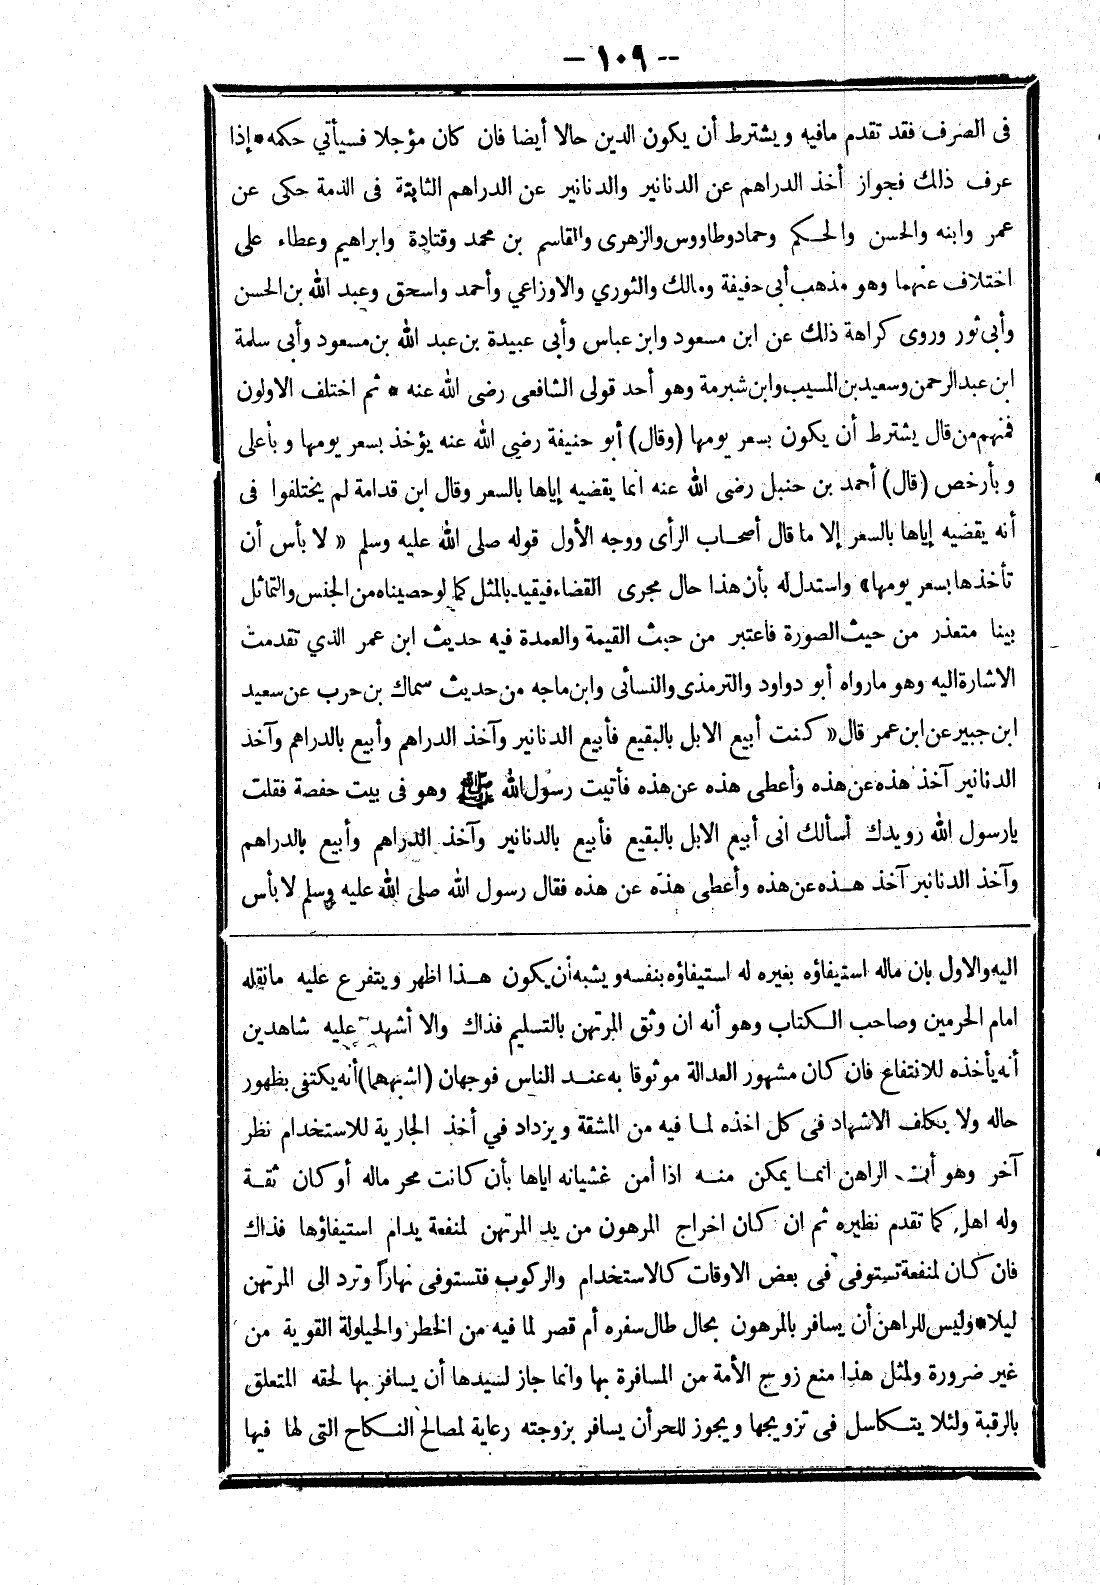 -- ١٠٩ --
فى الصرف فقد تقدم مافيه ويشترط أن يكون الدين حالا أيضا فان كان مؤجلا فسيأتي حكمه * إذا
عرف ذلك فجواز أخذ الدراهم عن الدنانير والدنانير عن الدراهم الثابتة فى الذمة حكى عن
عمر وابنه والحسن والحكم وحماد وطاووس والزهرى والقاسم بن محمد وقتادة وابراهيم وعطاء على
اختلاف عنهما وهو مذهب أبى حنيفة ومالك والثوري والاوزاعي وأحمد واسحق وعبد الله بن الحسن
وأبى ثور وروى كراهة ذلك عن ابن مسعود وابن عباس وأبى عبيدة بن عبد الله بن مسعود وأبى سلمة
ابن عبد الرحمن وسعيد بن المسيب وابن شبرمة وهو أحد قولى الشافعى رضى الله عنه * ثم اختلف الاولون
فمنهم من قال يشترط أن يكون بسعر يومها (وقال) أبو حنيفة رضي الله عنه يؤخذ بسعر يومها وبأعلى
وبأرخص (قال) أحمد بن حنبل رضى الله عنه انما يقضيه إياها بالسعر وقال ابن قدامة لم يختلفوا فى
أنه يقضيه إياها بالسعر إلا ما قال أصحاب الرأى ووجه الأول قوله صلى الله عليه وسلم « لا بأس أن
تأخذها بسعر يومها» واستدل له بأن هذا حال مجرى القضاء فيقيد بالمثل كما لو حصيناه من الجنس والتماثل
بينا متعذر من حيث الصورة فاعتبر من حيث القيمة والعمدة فيه حديث ابن عمر الذي تقدمت
الاشارة اليه وهو مارواه أبو دواود والترمذى والنسائى وابن ماجه من حديث سماك بن حرب عن سعيد
ابن جبير عن ابن عمر قال « كنت أبيع الابل بالبقيع فأبيع الدنانير وآخذ الدراهم وأبيع بالدراهم وآخذ
الدنانير آخذ هذه عن هذه وأعطى هذه عن هذه فأتيت رسول الله ﷺ وهو فى بيت حفصة فقلت
يارسول الله رويدك أسألك انى أبيع الابل بالبقيع فأبيع بالدنانير وآخذ الدراهم وأبيع بالدراهم
وآخذ الدنانير آخذ هذه عن هذه وأعطى هذه عن هذه فقال رسول الله صلى الله عليه وسلم لا بأس
اليه والاول بان ماله استيفاؤه بغيره له استيفاؤه بنفسه ويشبه أن يكون هذا اظهر ويتفرع عليه مانقله
امام الحرمين وصاحب الكتاب وهو أنه ان وثق المرتهن بالتسليم فذاك والا أشهد عليه شاهدين
أنه يأخذه للانتفاع فان كان مشهور العدالة موثوقا به عند الناس فوجهان (اشبههما) أنه يكتفى بظهور
حاله ولا يكلف الاشهاد فى كل اخذه لما فيه من المشقة ويزداد في أخذ الجارية للاستخدام نظر
آخر وهو أن الراهن انما يمكن منه اذا أمن غشيانه اياها بأن كانت محر ماله أو كان ثقة
وله اهل كما تقدم نظيره ثم ان كان اخراج المرهون من يد المرتهن لمنفعة يدام استيفاؤها فذاك
فان كان لمنفعة تستوفى فى بعض الاوقات كالاستخدام والركوب فتستوفى نهارا وترد الى المرتهن
ليلا * وليس للراهن أن يسافر بالمرهون بحال طال سفره أم قصر لما فيه من الخطر والحيلولة القوية من
غير ضرورة ولمثل هذا منع زوج الأمة من المسافرة بها وانما جاز لسيدها أن يسافر بها لحقه المتعلق
بالرقبة ولئلا يتكاسل فى تزويجها ويجوز للحر أن يسافر بزوجته رعاية لمصالح النكاح التى لها فيها